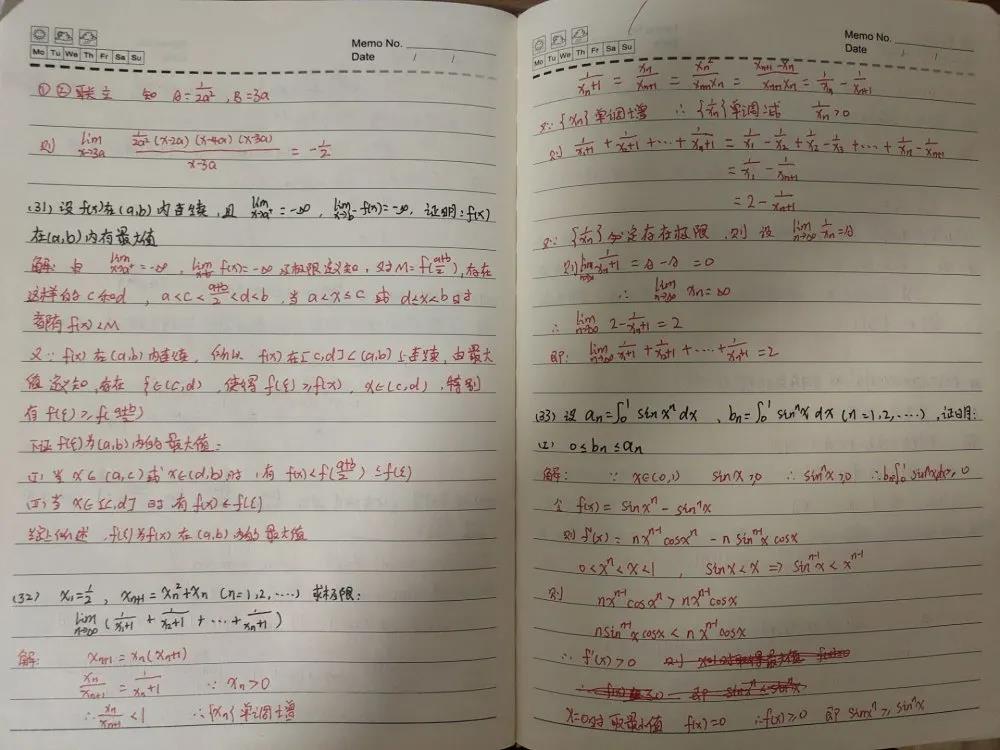 Mo Tu We Th Fr Sa Su
Memo No.
Date / /
①②联立 知 A=1/2a², B=3a
则 lim x→3a (1/2a² (x-2a)(x-4a)(x-3a))/(x-3a) = -1/2
(31) 设 f(x)在(a,b)内连续,且 lim x→a⁺ = -∞, lim x→b⁻ f(x)=-∞, 证明: f(x)
在(a,b)内有最大值
解: 由 lim x→a⁺ = -∞, lim x→b⁻ f(x)=-∞ 及极限定义知, 对M=f((a+b)/2), 存在
这样的 c 和 d, a<c<(a+b)/2<d<b, 当 a<x≤c 或 d<x<b 时
都有 f(x)<M
又∵ f(x)在(a,b)内连续, 所以 f(x)在[c,d]⊂(a,b)上连续, 由最大
值定义知, 存在 ξ∈(c,d), 使得 f(ξ)≥f(x), x∈(c,d), 特别
有 f(ξ)≥f((a+b)/2)
下证 f(ξ)为(a,b)内的最大值:
(I) 当 x∈(a,c)或 x∈(d,b)时, 有 f(x)<f((a+b)/2)≤f(ξ)
(II) 当 x∈[c,d] 时 有 f(x)≤f(ξ)
综上所述, f(ξ)为f(x)在(a,b)内的最大值
(32) x₁=1/2, xₙ₊₁=xₙ²+xₙ (n=1,2,....) 求极限:
lim n→∞ (1/(x₁+1) + 1/(x₂+1) + ... + 1/(xₙ+1))
解: xₙ₊₁=xₙ(xₙ+1)
xₙ/xₙ₊₁ = 1/(xₙ+1) ∵ xₙ>0
∴ xₙ/xₙ₊₁ <1 ∴{xₙ}单调增
Mo Tu We Th Fr Sa Su
Memo No.
Date / /
1/(xₙ+1) = xₙ/xₙ₊₁ = xₙ²/(xₙ₊₁xₙ) = (xₙ₊₁-xₙ)/(xₙ₊₁xₙ) = 1/xₙ - 1/xₙ₊₁
又∵{xₙ}单调增 ∴{1/xₙ}单调减 1/xₙ>0
则 1/(x₁+1) + 1/(x₂+1) + ... + 1/(xₙ+1) = 1/x₁ - 1/x₂ + 1/x₂ - 1/x₃ + ... + 1/xₙ - 1/xₙ₊₁
= 1/x₁ - 1/xₙ₊₁
= 2 - 1/xₙ₊₁
又∵{1/xₙ}必定存在极限, 则 设 lim n→∞ 1/xₙ=A
则 lim n→∞ 1/(xₙ+1) = A-A = 0
∴ lim n→∞ xₙ=∞
∴ lim n→∞ 2-1/xₙ₊₁ = 2
即: lim n→∞ 1/(x₁+1) + 1/(x₂+1) + ... + 1/(xₙ+1) = 2
(33) 设 aₙ=∫₀¹ sin xⁿ dx, bₙ=∫₀¹ sinⁿx dx (n=1,2,....), 证明:
(I) 0≤bₙ≤aₙ
解: ∵ x∈(0,1) sinx>0 ∴ sinⁿx>0 ∴bₙ=∫₀¹ sinⁿxdx≥0
令 f(x) = sinxⁿ - sinⁿx
则 f'(x) = nxⁿ⁻¹cosxⁿ - n sinⁿ⁻¹x cosx
0<xⁿ<x<1, sinx<x ⇒ sinⁿ⁻¹x<xⁿ⁻¹
则 nxⁿ⁻¹cosxⁿ > nxⁿ⁻¹cosx
nsinⁿ⁻¹x cosx < nxⁿ⁻¹cosx
∴ f'(x)>0
x=0时 取最小值 f(x)=0 ∴f(x)≥0 即 sinxⁿ≥sinⁿx